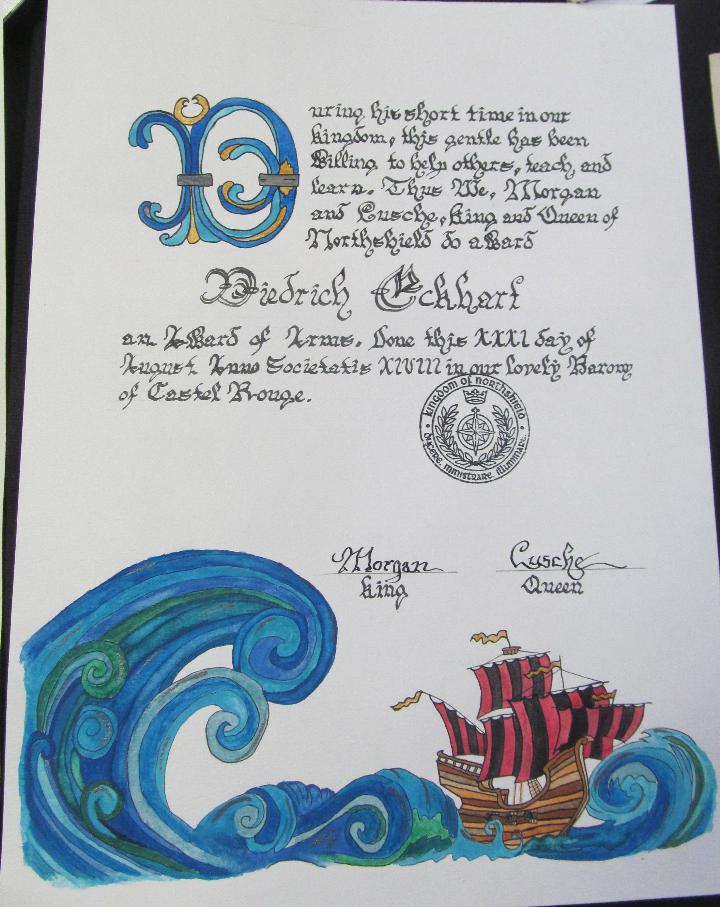 During his short time in our
kingdom, this gentle has been
Willing to help others, teach, and
learn. Thus We, Morgan
and Lusche, King and Queen of
Northshield do award
Diedrich Eckhart
an Award of Arms. Done this XXXI day of
August Anno Societatis XLVIII in our lovely Barony
of Castel Rouge.
kingdom of northshield
Dicere ministrare illuminare
Morgan Lusche
King Queen